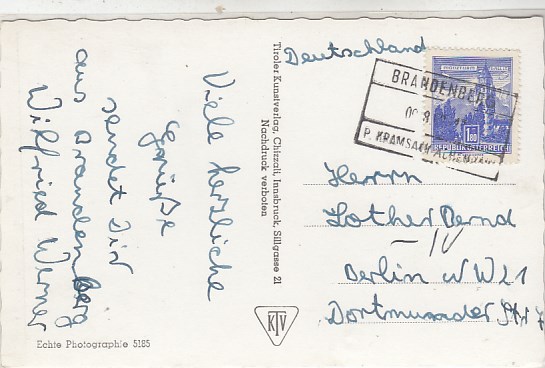 Viele herzliche
Grüße
sendet Dir
aus Brandenberg
Wilfried Werner
Echte Photographie 5185
Tiroler Kunstverlag, Chizzali, Innsbruck, Sillgasse 21
Nachdruck verboten
KTV
Deutschland
BRANDENBERG
P. KRAMSACH-ACHENRAIN
1.80
REPUBLIK ÖSTERREICH
Herrn
Lothar Bernd
Berlin NW21
Dortmunder Str 7